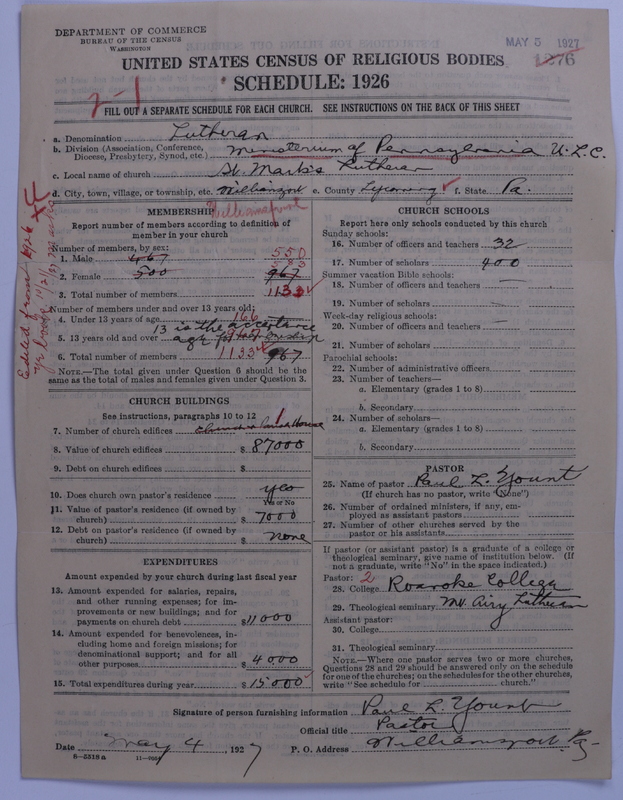 DEPARTMENT OF COMMERCE
BUREAU OF THE CENSUS
WASHINGTON
MAY 5 1927
1376
UNITED STATES CENSUS OF RELIGIOUS BODIES
SCHEDULE: 1926
2-1
FILL OUT A SEPARATE SCHEDULE FOR EACH CHURCH. SEE INSTRUCTIONS ON THE BACK OF THIS SHEET
a. Denomination Lutheran
b. Division (Association, Conference, Diocese, Presbytery, Synod, etc.) Ministerium of Pennsylvania U.L.C.
c. Local name of church St. Mark's Lutheran
d. City, town, village, or township, etc. Williamsport e. County Lycoming f. State Pa.
Williamsport
MEMBERSHIP
Report number of members according to definition of
member in your church
Number of members, by sex:
1. Male 467 550
2. Female 500 583 967
3. Total number of members 1133
Number of members under and over 13 years old:
4. Under 13 years of age 166
13 is the acceptance
5. 13 years old and over age for 967
6. Total number of members 1133 967
NOTE.—The total given under Question 6 should be
same as the total of males and females given under Question 3.
Edited from 1926
Yr book
CHURCH BUILDINGS
See instructions, paragraphs 10 to 12
7. Number of church edifices 1 Church & Parish House
8. Value of church edifices $ 87000
9. Debt on church edifices $
10. Does church own pastor's residence yes
Yes or No
11. Value of pastor's residence (if owned by
church) $ 7000
12. Debt on pastor's residence (if owned by
church) $ none
EXPENDITURES
Amount expended by your church during last fiscal year
13. Amount expended for salaries, repairs,
and other running expenses; for im-
provements or new buildings; and for
payments on church debt $11000
14. Amount expended for benevolences, in-
cluding home and foreign missions; for
denominational support; and for all
other purposes $ 4000
15. Total expenditures during year $ 15000
CHURCH SCHOOLS
Report here only schools conducted by this church
Sunday schools:
16. Number of officers and teachers 32
17. Number of scholars 400
Summer vacation Bible schools:
18. Number of officers and teachers —
19. Number of scholars —
Week-day religious schools:
20. Number of officers and teachers —
21. Number of scholars
Parochial schools:
22. Number of administrative officers
23. Number of teachers—
a. Elementary (grades 1 to 8)
b. Secondary
24. Number of scholars—
a. Elementary (grades 1 to 8)
b. Secondary
PASTOR
25. Name of pastor Paul L. Yount
(If church has no pastor, write "None")
26. Number of ordained ministers, if any, em-
ployed as assistant pastors
27. Number of other churches served by the
pastor or his assistants
If pastor (or assistant pastor) is a graduate of a college or
theological seminary, give name of institution below. (If
not a graduate, write "No" in the space indicated.)
Pastor: 2
28. College Roanoke College
29. Theological seminary Mt. Airy Lutheran
Assistant pastor:
30. College
31. Theological seminary
NOTE.—Where one pastor serves two or more churches,
Questions 28 and 29 should be answered only on the schedule
for one of the churches; on the schedules for the other churches,
write "See schedule for church."
Signature of person furnishing information Paul L. Yount
Official title Pastor
Date May 4, 1927 P. O. Address Williamsport Pa.
6—5318a